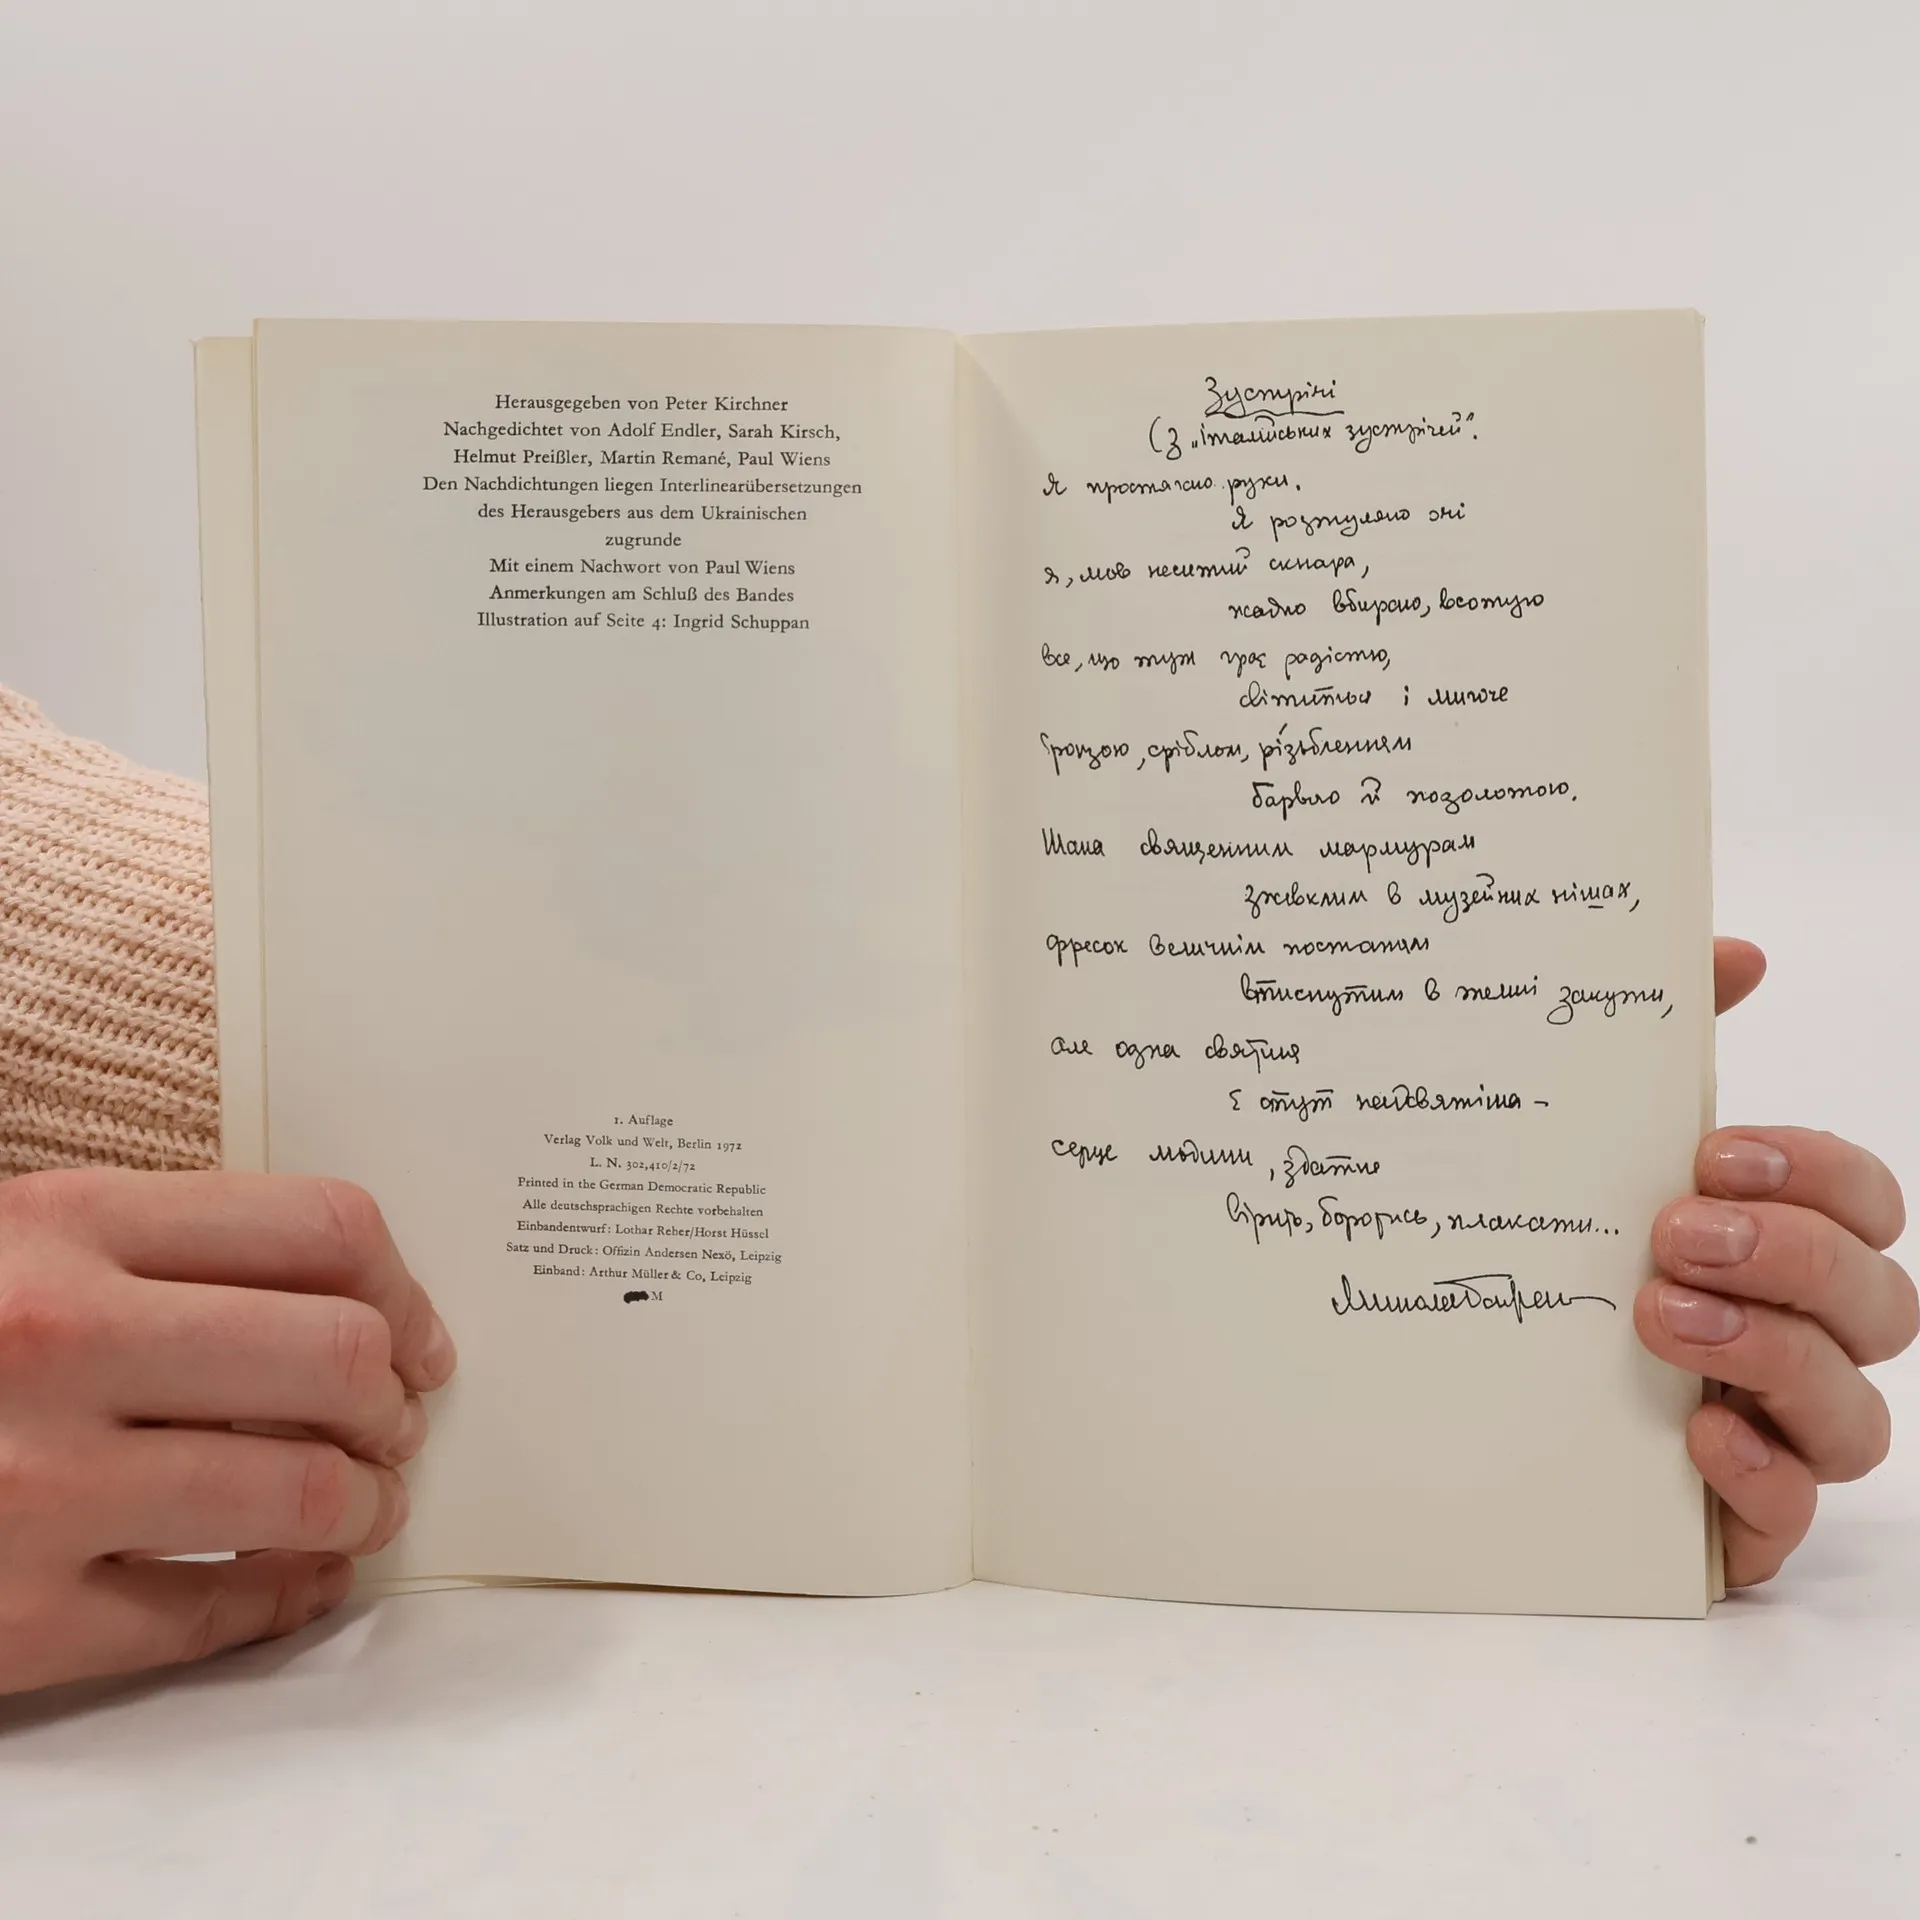 Herausgegeben von Peter Kirchner
Nachgedichtet von Adolf Endler, Sarah Kirsch,
Helmut Preißler, Martin Remané, Paul Wiens
Den Nachdichtungen liegen Interlinearübersetzungen
des Herausgebers aus dem Ukrainischen
zugrunde
Mit einem Nachwort von Paul Wiens
Anmerkungen am Schluß des Bandes
Illustration auf Seite 4: Ingrid Schuppan
1. Auflage
Verlag Volk und Welt, Berlin 1972
L. N. 302,410/2/72
Printed in the German Democratic Republic
Alle deutschsprachigen Rechte vorbehalten
Einbandentwurf: Lothar Reher/Horst Hüssel
Satz und Druck: Offizin Andersen Nexö, Leipzig
Einband: Arthur Müller & Co, Leipzig
M
Зустрічі
(З „італійських зустрічей".
Я простягаю руки.
Я розтуляю очі
я, мов неситий скнара,
жадно вбираю, всотую
все, що тут грає радістю,
світиться і миготе
бронзою, сріблом, різьбленням
барвою й позолотою.
Шана священним мармурам
зжовклим в музейних нішах,
фресок величнім постатям
втиснутим в темні закути,
але одна святиня
Є отут найсвятіша –
серце людини, здатне
вірить, боротись, плакати...